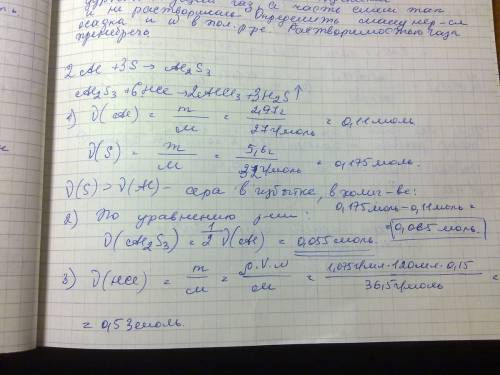 газ, а часть смеси так
и не растворилась. Определить массу нер-ся
осадка и ω в пол. р-ре. Растворимостью газа
пренебречь
2Al + 3S → Al₂S₃
Al₂S₃ + 6HCl → 2AlCl₃ + 3H₂S↑
1) ν(Al) = m/M = 2,97г/27г/моль = 0,11 моль
ν(S) = m/M = 5,6г/32г/моль = 0,175 моль.
ν(S) > ν(Al) – сера в избытке, в колич-ве:
0,175 моль - 0,11 моль =
= 0,065 моль.
2) По уравнению р-ии:
ν(Al₂S₃) = 1/2 ν(Al) = 0,055 моль.
3) ν(HCl) = m/M = ρ·V·ω/M = 1,075г/мл·120мл·0,15/36,5г/моль =
= 0,53 моль.